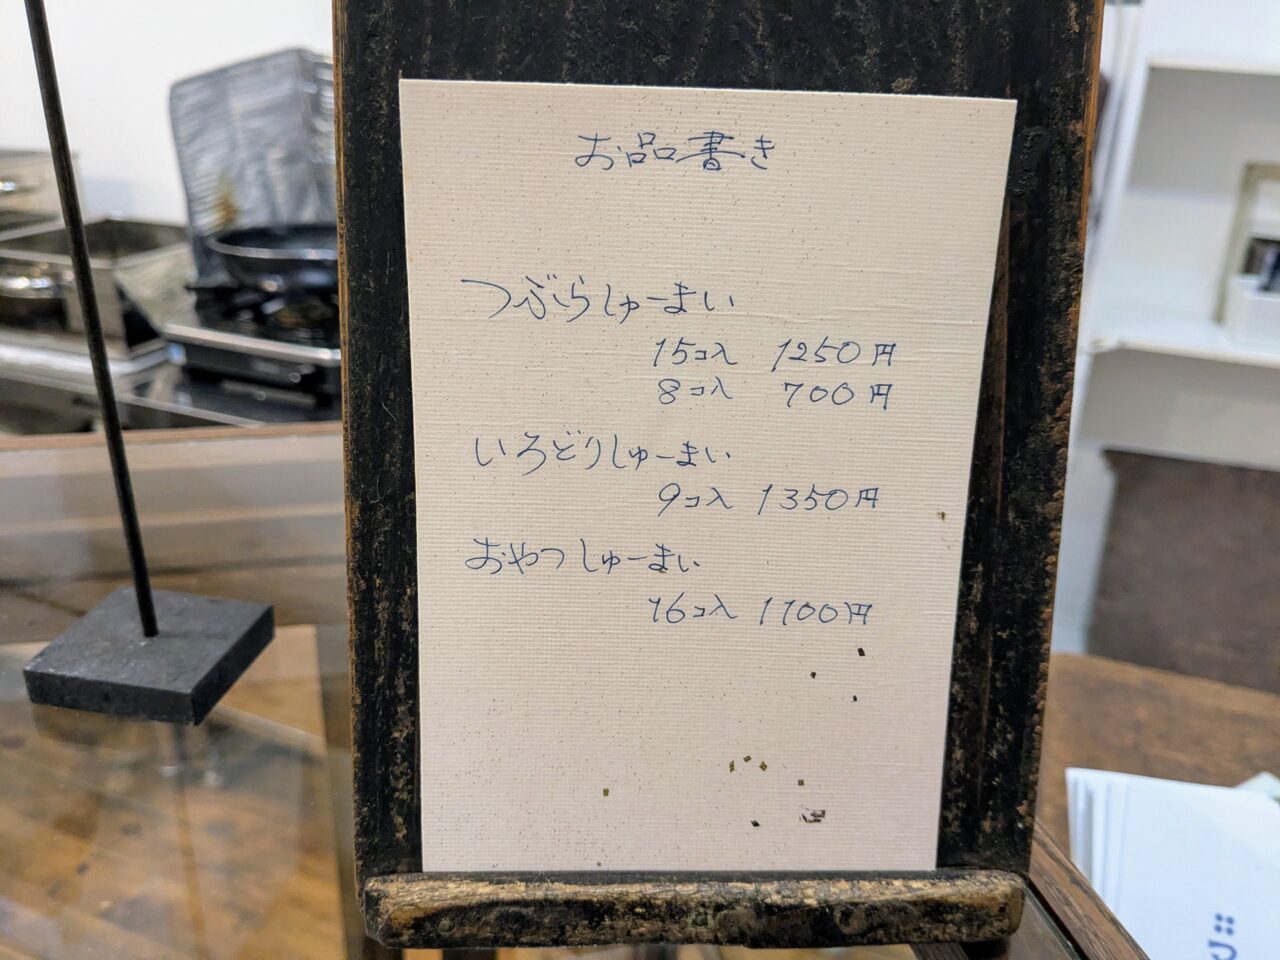 お品書き
つぶらしゅーまい
15コ入 1250円
8コ入 700円
いろどりしゅーまい
9コ入 1350円
おやつしゅーまい
16コ入 1100円